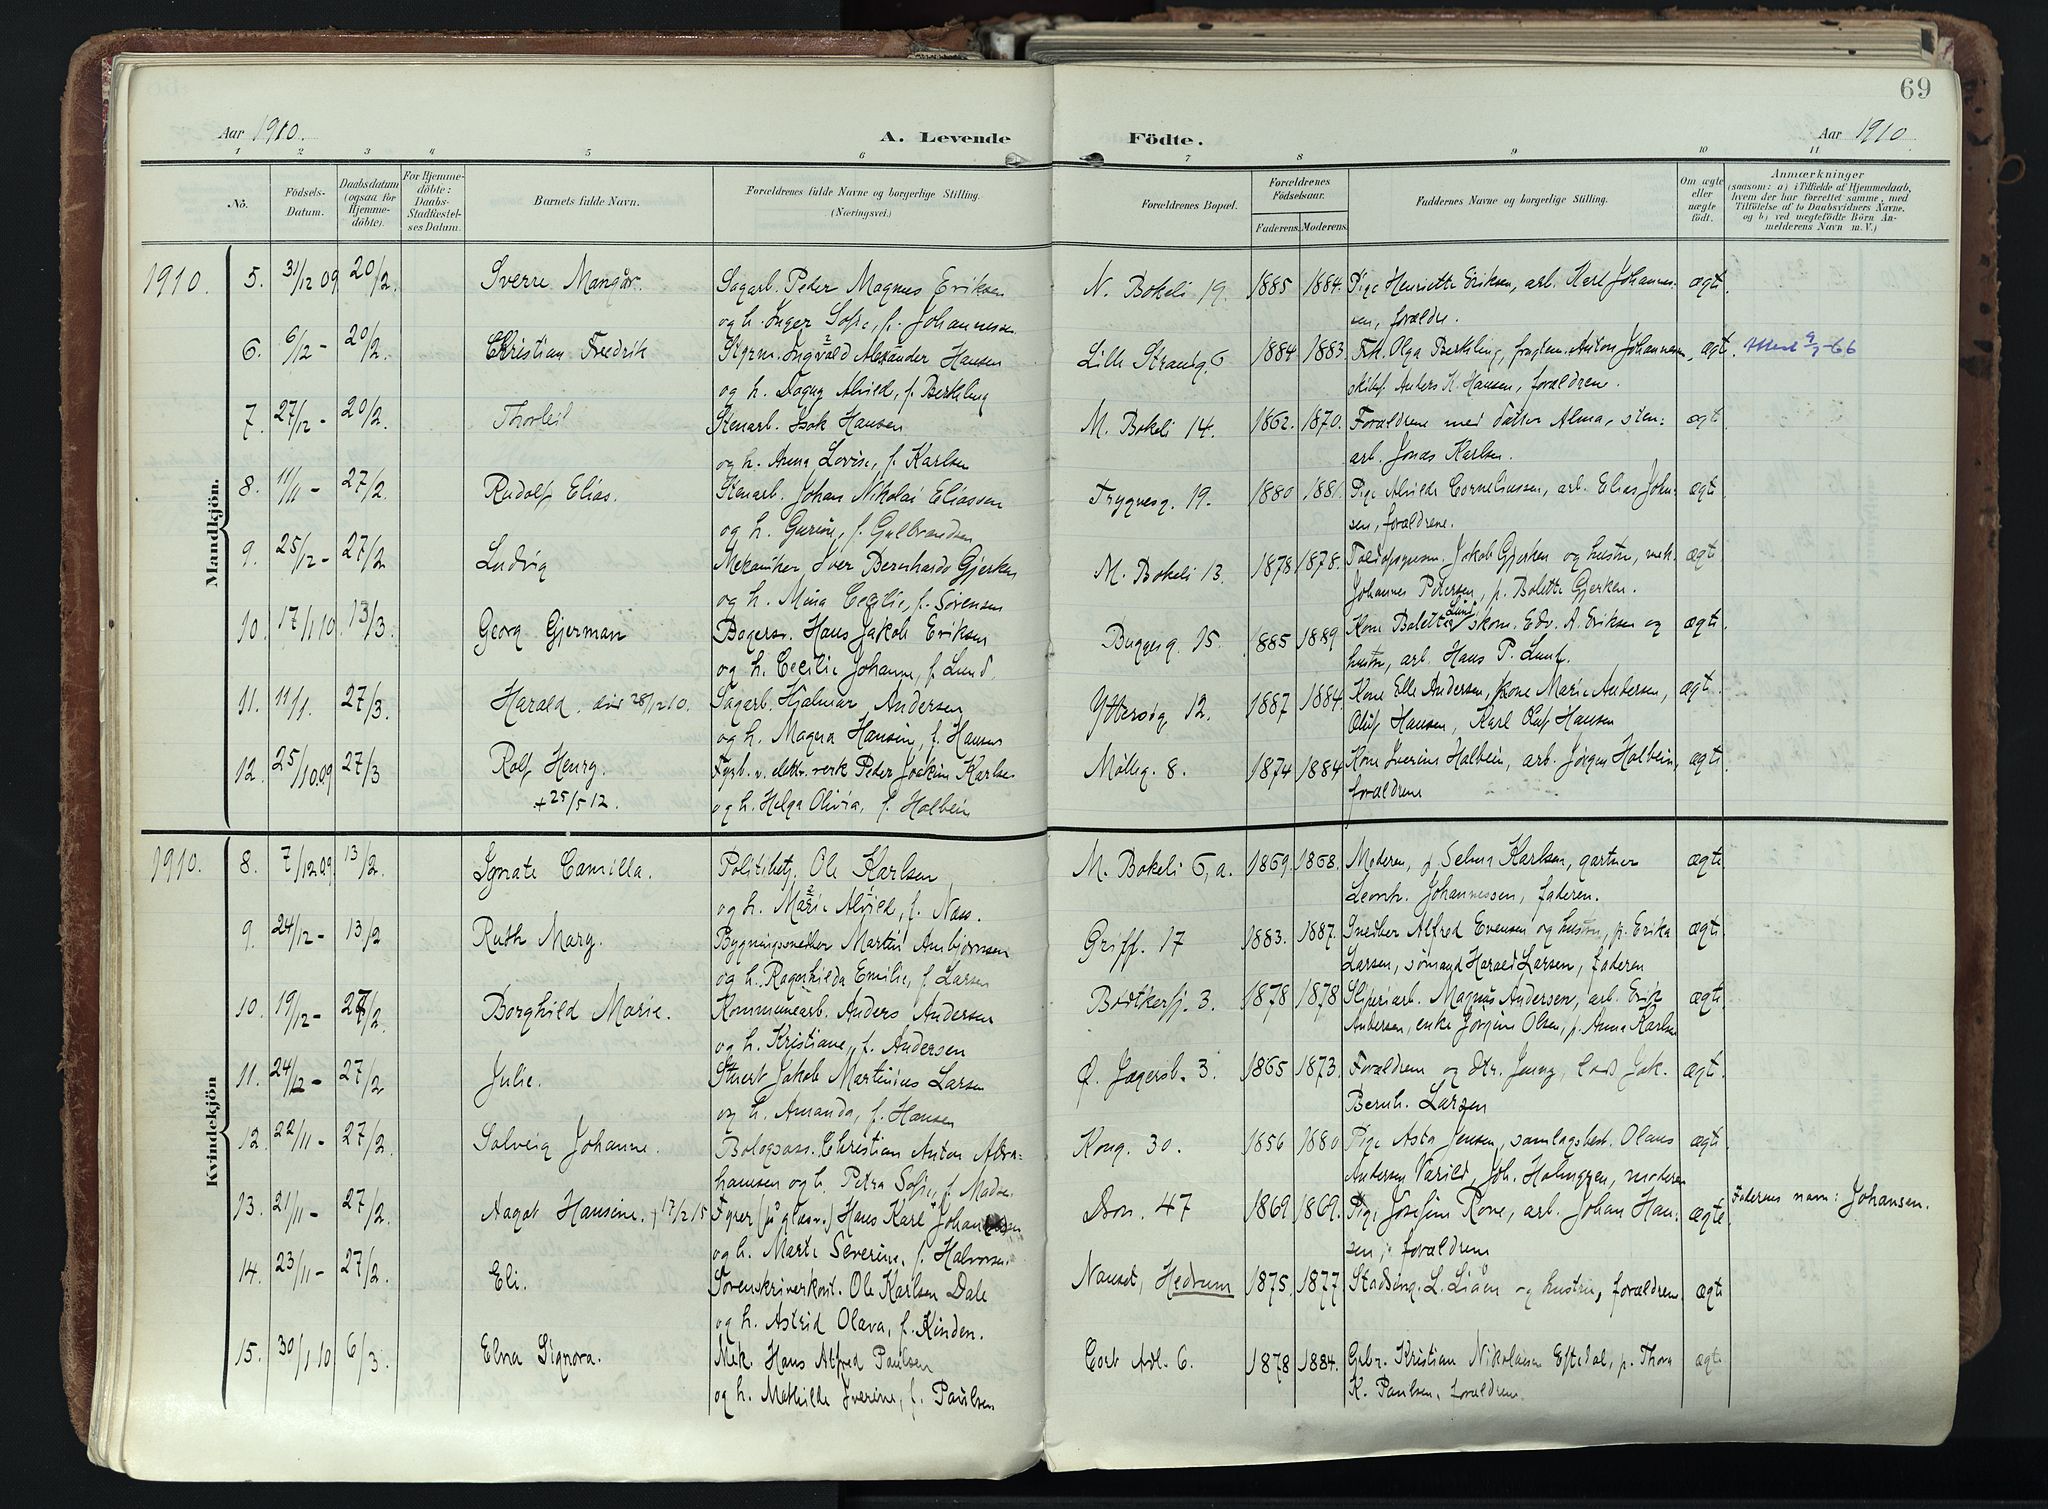 69
Aar 1910.
A. Levende Födte.
Aar 1910.
1 2 3 4 5 6 7 8 9 10 11
No.
Födsels-Datum.
Daabsdatum (ogsaa for Hjemmedöbte).
For Hjemmedöbte: Daabs-Stadfæstelses Datum.
Barnets fulde Navn.
Forældrenes fulde Navne og borgerlige Stilling. (Næringsvei.)
Forældrenes Bopæl.
Forældrenes Födselsaar.
Faderens. Moderens.
Faddernes Navne og borgerlige Stilling.
Om ægte eller uægte födt.
Anmærkninger
(saasom: a) i Tilfælde af Hjemmedaab, hvem der har forrettet samme, med Tilföielse af to Daabsvidners Navne. og b) ved uegtefödte Börn Anmelderens Navn m. V.)
Mandkjön.
1910. 5. 31/12 09 20/2. Sverre Mangår. Sagarb. Peder Magnus Eriksen N. Bokeli 19. 1885 1884. Pige Henriette Eriksen, arb. Karl Johannes- ægte
og h. Inger Sofie, f. Johannesen sen, forældre.
6. 6/12 - 20/2. Christian Fredrik Styrm. Ingvald Alexander Hansen Lille Strandg. 6 1884 1883. Frk. Olga Berkling, Anton Johannesen, ægt.
og h. Dagny Alvild, f. Berkling skibsf. Anders K. Hansen, forældrene.
7. 27/12 - 20/2. Thorleif Stenarb. Isak Hansen M. Bokeli 14. 1862. 1870. Forældrene med datter Alma, sten- ægt
og h. Anna Lovise, f. Karlsen arb. Jonas Karlsen.
8. 11/11 - 27/2. Rudolf Elias. Stenarb. Johan Nikolai Eliassen Trygvesg. 19. 1880 1881. Pige Alvilde Corneliussen, arb. Elias John- ægte
og h. Gurine, f. Gulbrandsen sen, forældrene.
9. 25/12 - 27/2 Ludvig Mekaniker Iver Bernhard Gjerken M. Bokeli 13. 1878 1878. Jakob Gjerken og hustru, mek. ægte
og h. Mina Cecilie, f. Sørensen Johannes Petersen, p. Bolette Gjerken.
10. 17/1 10. 13/3. Georg Gjerman Bagersv. Hans Jakob Eriksen Buggesg. 15. 1885 1889 Kone Bolette Lund, skom. Edv. A. Eriksen og ægte
og h. Cecilie Johanne, f. Lund. hustru, arb. Hans P. Lund.
11. 11/1. 27/3. Harald. død 28/12 10. Sagarb. Hjalmar Andersen Yttersøg. 12. 1887 1884 Kone Elle Andersen, kone Marie Andersen, ægt.
og h. Magna Hansine, f. Hansen Oluf Hansen, Karl Oluf Hansen
12. 25/10.09 27/3 Rolf Henry. Fyrb. v. elektr. verk Peder Joakim Karlsen Mölleg. 8. 1874 1884 Kone Iverine Holbein, arb. Jörgen Holbein, ægte
+ 25/5 12. og h. Helga Olivia, f. Holbein forældrene
Kvindekjön
1910. 8. 7/12 09 13/2. Synnte Camilla. Politibetj. Ole Karlsen M. Bokeli 6, a. 1869. 1868. Moderen, p. Selma Karlsen, gartner ægte
og h. Marie Alvild, f. Næss. Leonh. Johannessen, faderen.
9. 24/12 - 13/2 Ruth Mary. Bygningssnedker Martin Ambjørnsen Griff. 17 1883. 1887. Snedker Alfred Evensen og hustru, p. Erika ægte
og h. Ragnhilda Emilie, f. Larsen Larsen, sømand Harald Larsen, faderen
10. 19/12 - 27/2. Borghild Marie. Kommunearb. Anders Andersen Bödtkersj. 3. 1878 1878 Sliperiarb. Magnus Andersen, arb. Erik ægte
og h. Kristiane, f. Andersen Andersen, enke Jörgine Olsen, p. Anna Karlsen
11. 24/12 - 27/2 Julie. Stuert Jakob Martinius Larsen Ø. Jægersb. 3. 1865 1873. Forældrene og dtr. Jenny, Jak. ægte
og h. Amanda, f. Hansen Bernh. Larsen
12. 22/11 - 27/2. Solveig Johanne. Bologsass. Christian Anton Abra- Kong. 30. 1856 1880 Pige Asta Jensen, samlagsbest. Olaus ægte
hamsen og h. Petra Sofie, f. Madsen Andersen Varild, Joh. Holmgren, moderen
13. 21/11 - 27/2. Aagot Hansine. + 17/2 15 Fyrer (på glasv.) Hans Karl Johansen Dron. 47 1869 1869. Pige Josefine Rone, arb. Johan Han- ægte Faderens navn: Johansen.
og h. Marte Severine, f. Halvorsen sen, forældrene
14. 23/11 - 27/2. Eli. Sorenskriverkont. Ole Karlsen Dale Nanset, Hedrum 1875. 1877 Stadsing. L. Liåen og hustru, forældrene ægte
og h. Astrid Olava, f. Kinden.
15. 30/1 10 6/3. Elna Signora. Mek. Hans Alfred Paulsen Cort Adl. 6. 1878 1884. Kristian Nikolaisen Eftedal, p. Thora ægte
og h. Mathilde Iverine, f. Paulsen K. Paulsen, forældrene.